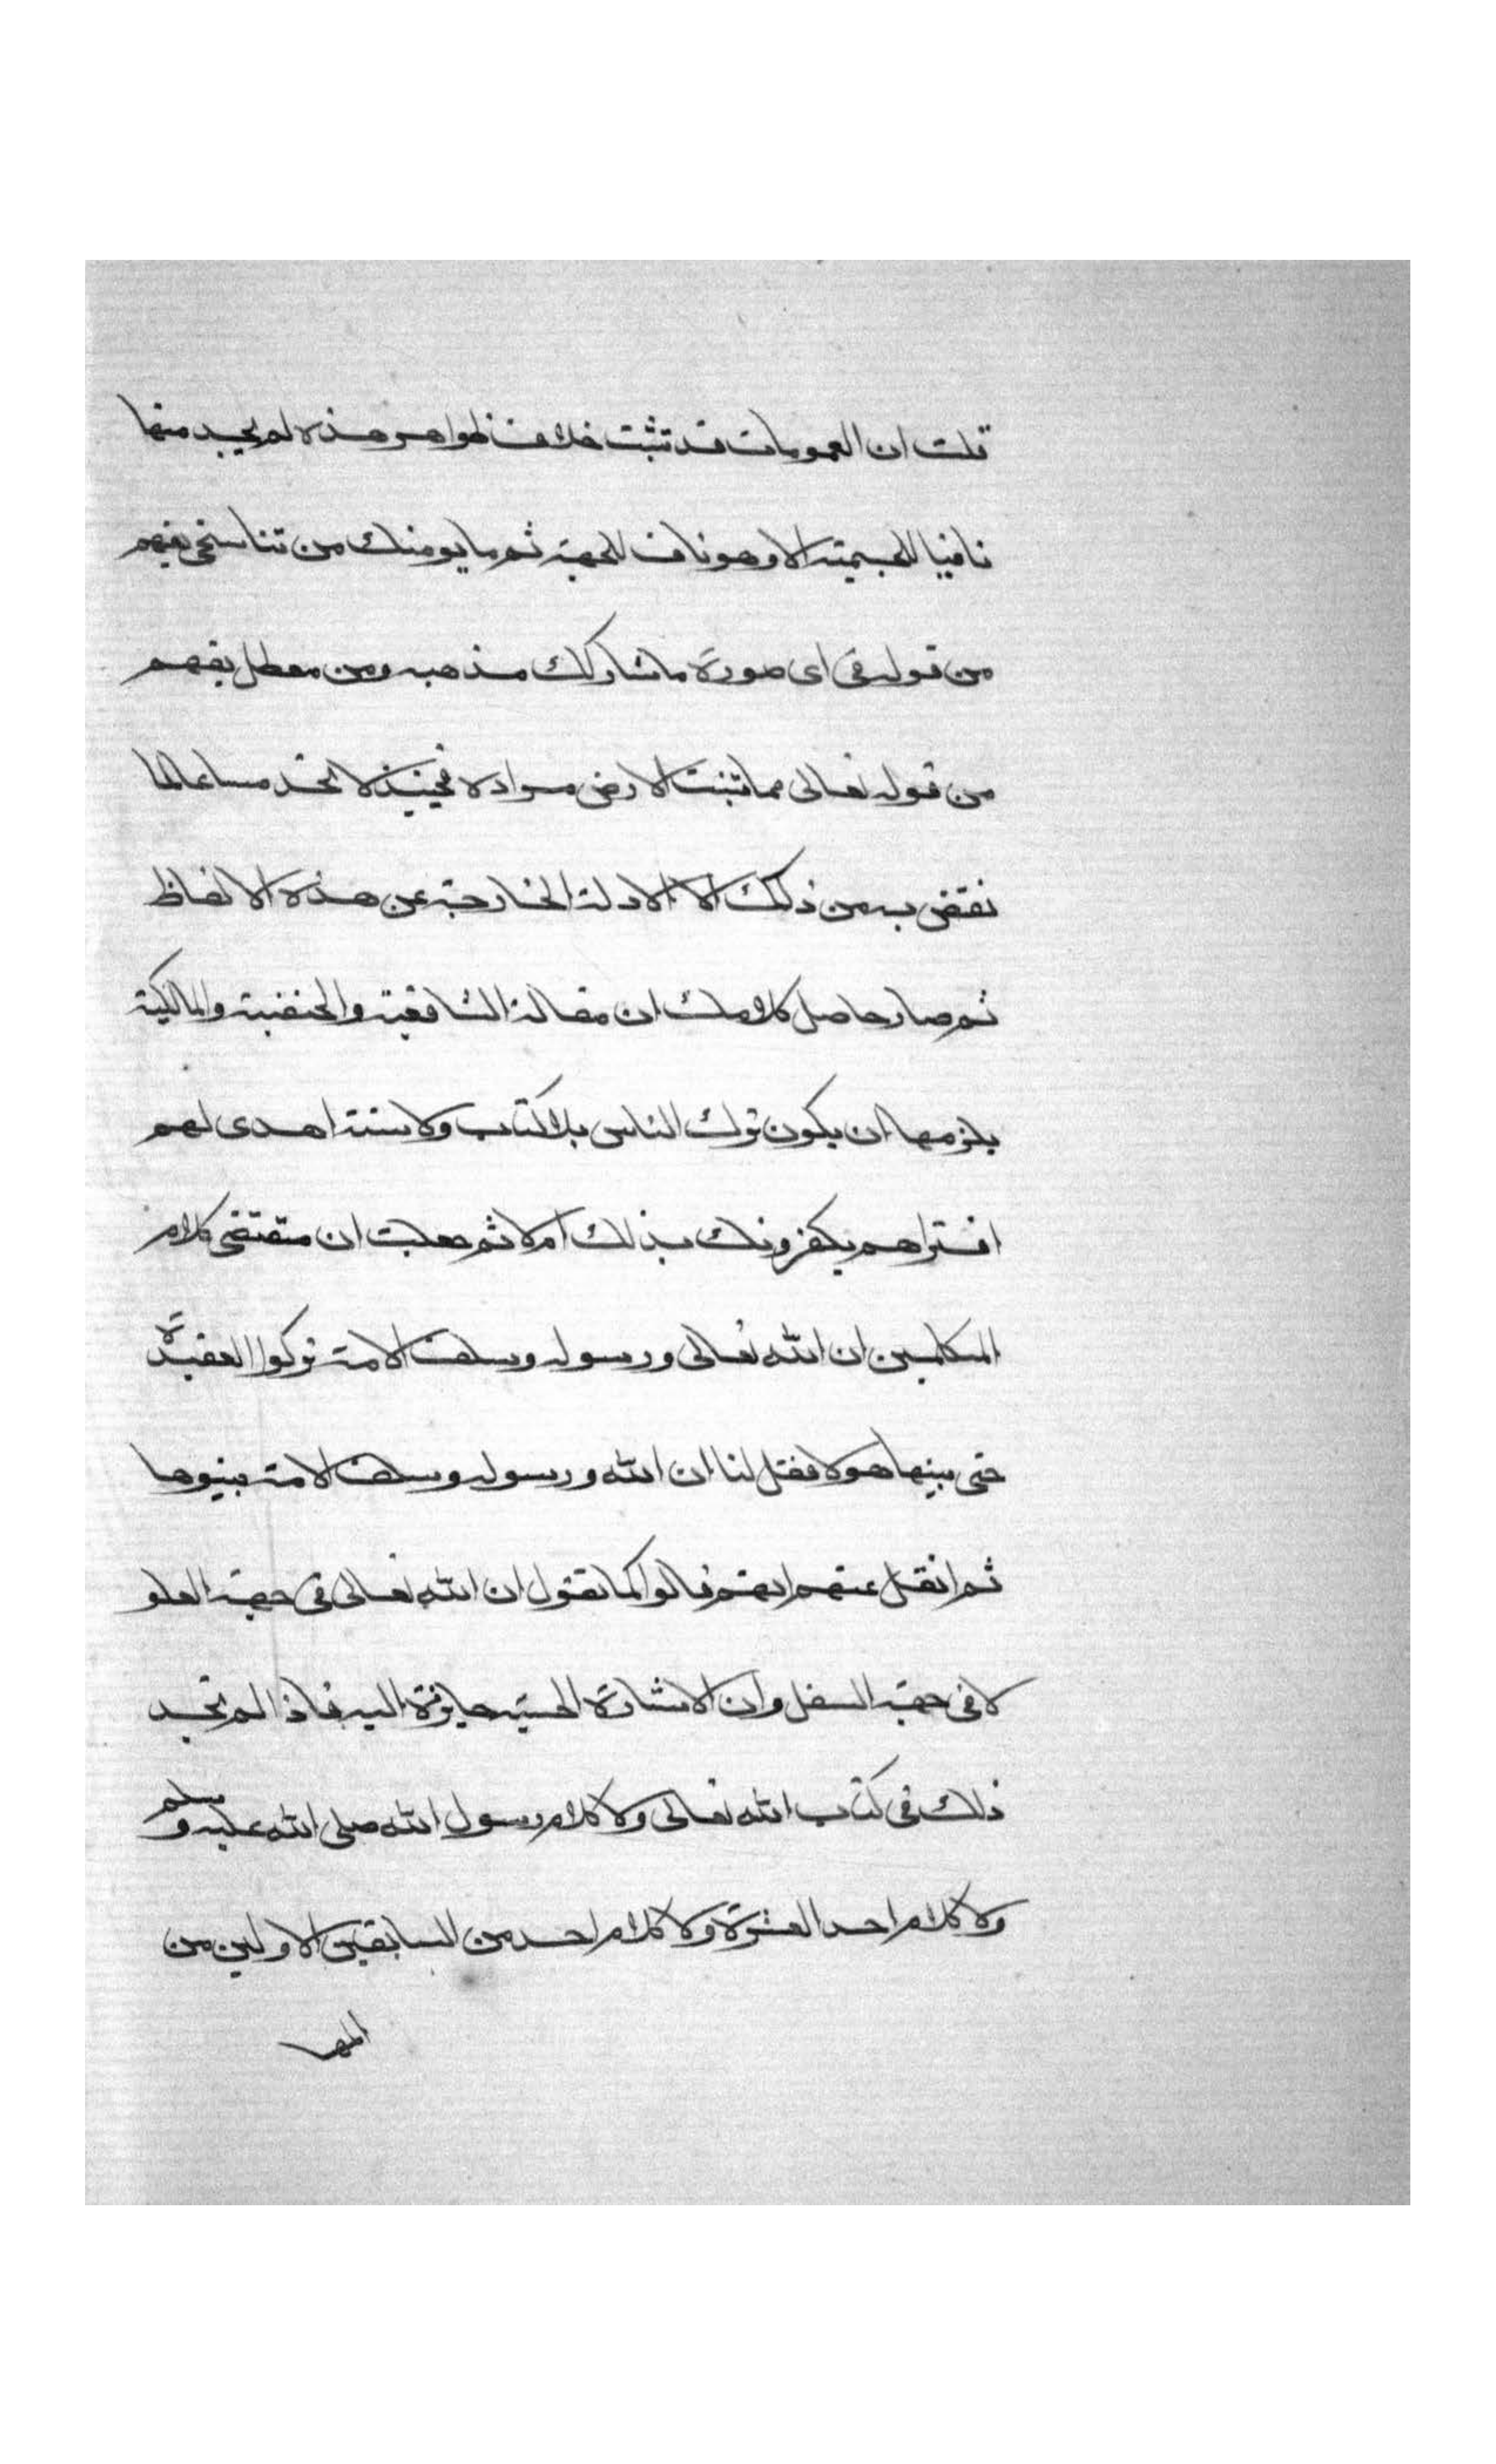 قلت ان العمومات قد تثبت خلاف ظواهر هذه لم يجد منها
نافيا للجسمية الا وهو ناف للجهة ثم ما يومنك من تناسخى يفهم
من قوله فى اى صورة ماشا ركبك مذهبه ومن معطل يفهم
من قوله تعالى مما تنبت الارض مراده فحينئذ لا تجد مساغا لما
نقتض به من ذلك الا الادلة الخارجة عن هذه الالفاظ
ثم صار حاصل كلامك ان مقالة الشافعية والحنفية والمالكية
يلزمها ان يكون ترك الناس بلا كتاب ولا سنة اهدى لهم
افتراهم يكفرونك بذلك ام لا ثم جعلت ان مقتضى كلام
المتكلمين ان الله تعالى ورسوله وسلف الامة تركوا العقيدة
حتى بينها هولا فقل لنا ان الله ورسوله وسلف الامة بينوها
ثم انقل عنهم انهم قالوا كما تقول ان الله تعالى فى جهة العلو
لا فى جهة السفل وان الاشارة الحسية جايزة اليه فاذا لم تجد
ذلك فى كتاب الله تعالى ولا كلام رسول الله صلى الله عليه وسلم
ولا كلام احد العشرة ولا كلام احد من السابقين الاولين من
المها